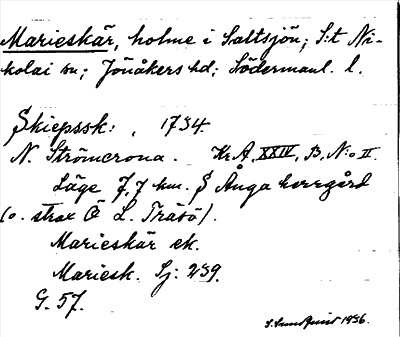 Marieskär, holme i Saltsjön; S:t Ni-
kolai sn; Jönåkers hd; Södermanl. l.
Skiepssk: , 1734.
N. Strömcrona. Kr.A. XXIV, B, N:o II.
Läge 7,7 km. S Ånga herrgård
(o. strax Ö L. Träsö).
Marieskär ek.
Mariesk. Sj: 239.
G. 57.
S. Sundquist 1936.